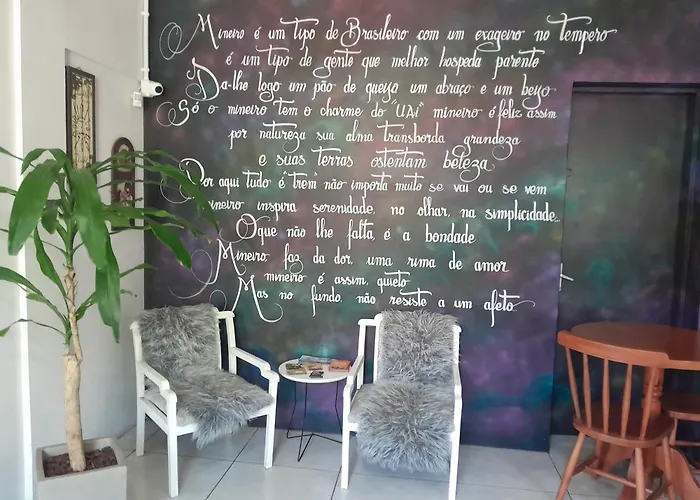 Mineiro é um tipo de Brasileiro com um exagero no tempero
é um tipo de gente que melhor hospeda parente
Da-lhe logo um pão de queijo um abraço e um beijo
Só o mineiro tem o charme do "UAi" mineiro é feliz assim
por natureza sua alma transborda grandeza
e suas terras ostentam beleza
Por aqui tudo é "trem" não importa muito se vai ou se vem
mineiro inspira serenidade, no olhar, na simplicidade...
O que não lhe falta, é a bondade
Mineiro faz da dor, uma rima de amor
mineiro é assim, quieto
Mas no fundo, não resiste a um afeto